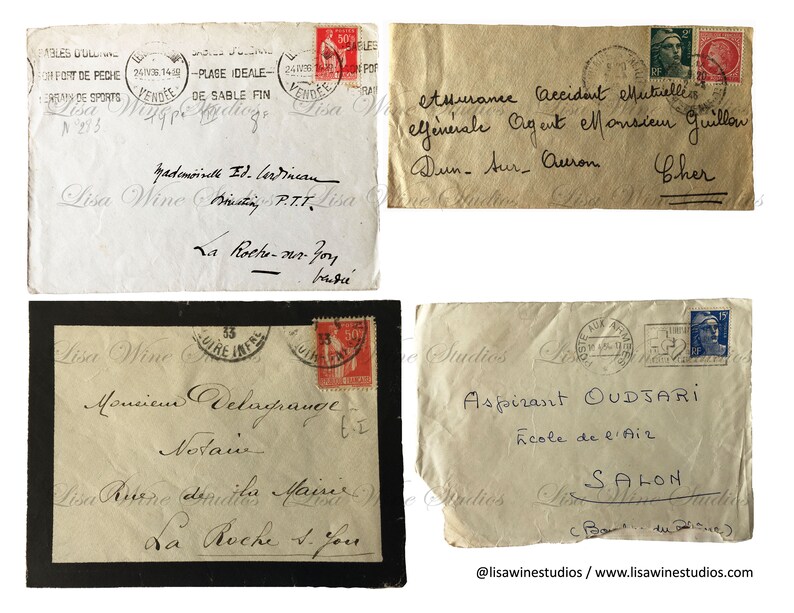 SABLES D'OLONNE
SON PORT DE PECHE
TERRAIN DE SPORTS
24 IV 36. 14 30
VENDÉE
SABLES D'OLONNE
-PLAGE IDEALE-
DE SABLE FIN
VENDÉE
POSTES
50c
N° 283
Mademoiselle Ed. Cardineau
Direction P.T.T.
La Roche-sur-Yon
Vendée
2F
RF
Assurance Accident Mutuelle
Générale Agent Monsieur Guillon
Dun-sur-Auron
Cher
33
LOIRE INFRE
33
POSTES
50c
REPUBLIQUE FRANÇAISE
Monsieur Delagrange
Notaire
Rue de la Mairie
La Roche s. Yon
POSTE AUX ARMÉES
15F
RF
Aspirant OUDJARI
École de l'Air
SALON
(Bouches du Rhône)
Lisa Wine Studios
@lisawinestudios / www.lisawinestudios.com